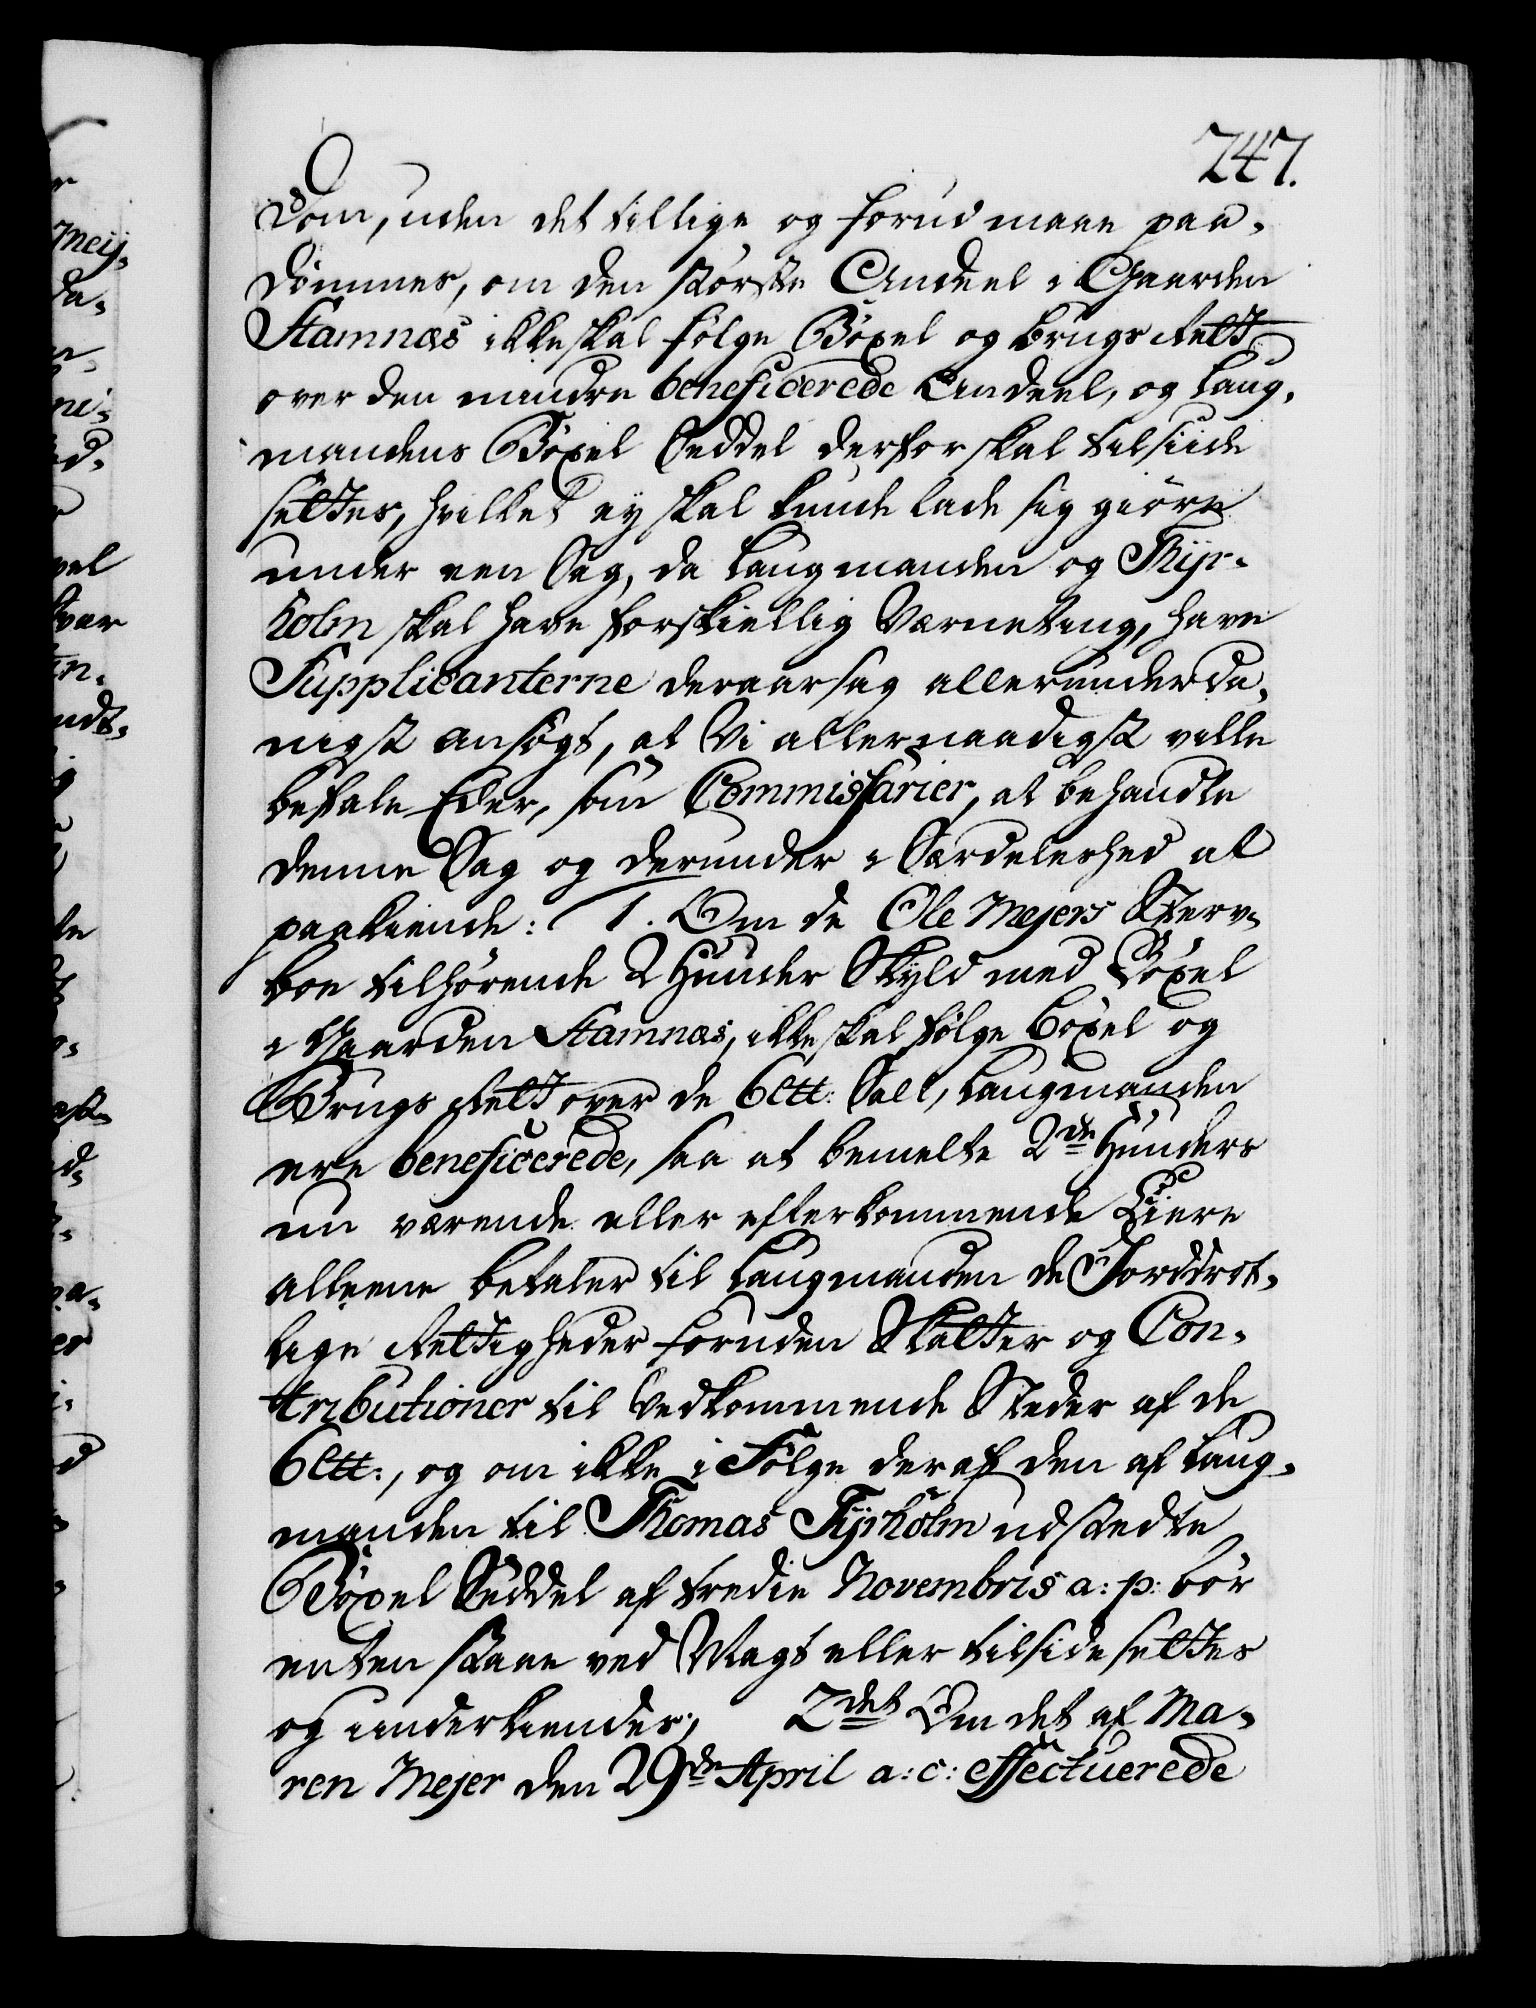 247.
Dom, uden det tillige og forud maae paa-
dømmes, om den største Andeel i Gaarden
Stamnæs ikke skal følge Böxel og brugs Rett
over den mindre beneficerede Andeel, og Laug-
mandens Böxel Seddel derfor skal tilsiide
settes, hvilket ey skal kunde lade sig giöre
under een Sag, da Laugmanden og Thyr-
holm skal have forskiellig Værneting, have
Supplicanterne deraarsag allerunderda-
nigst ansögt, at Vi allernaadigst ville
befale Eder, som Commissarier, at behandle
denne Sag og derunder i Særdeleshed at
paakiende: 1. Om de Ole Mejers Sterv-
boe tilhörende 2 Hunder Skyld med Böxel
i Gaarden Stamnæs, ikke skal fölge böxel og
Brugs Rett over de 6 ℔: Salt, Laugmanden
ere beneficerede, saa at bemelte 2de Hunders
nu værende eller efterkommende Eiere
alleene betaler til Laugmanden de Jorddrot-
lige Rettigheder foruden Skatter og Con-
tributioner til Vedkommende Steder af de
6 ℔:, og om ikke i Fölge deraf den af Laug-
manden til Thomas Tyrholm udstedte
Böxel Seddel af tredie Novembris a: p: bör
enten staae ved Magt eller tilside settes
og underkiendes; 2det Om det af Ma-
ren Mejer den 29de April a: c: effectuerede